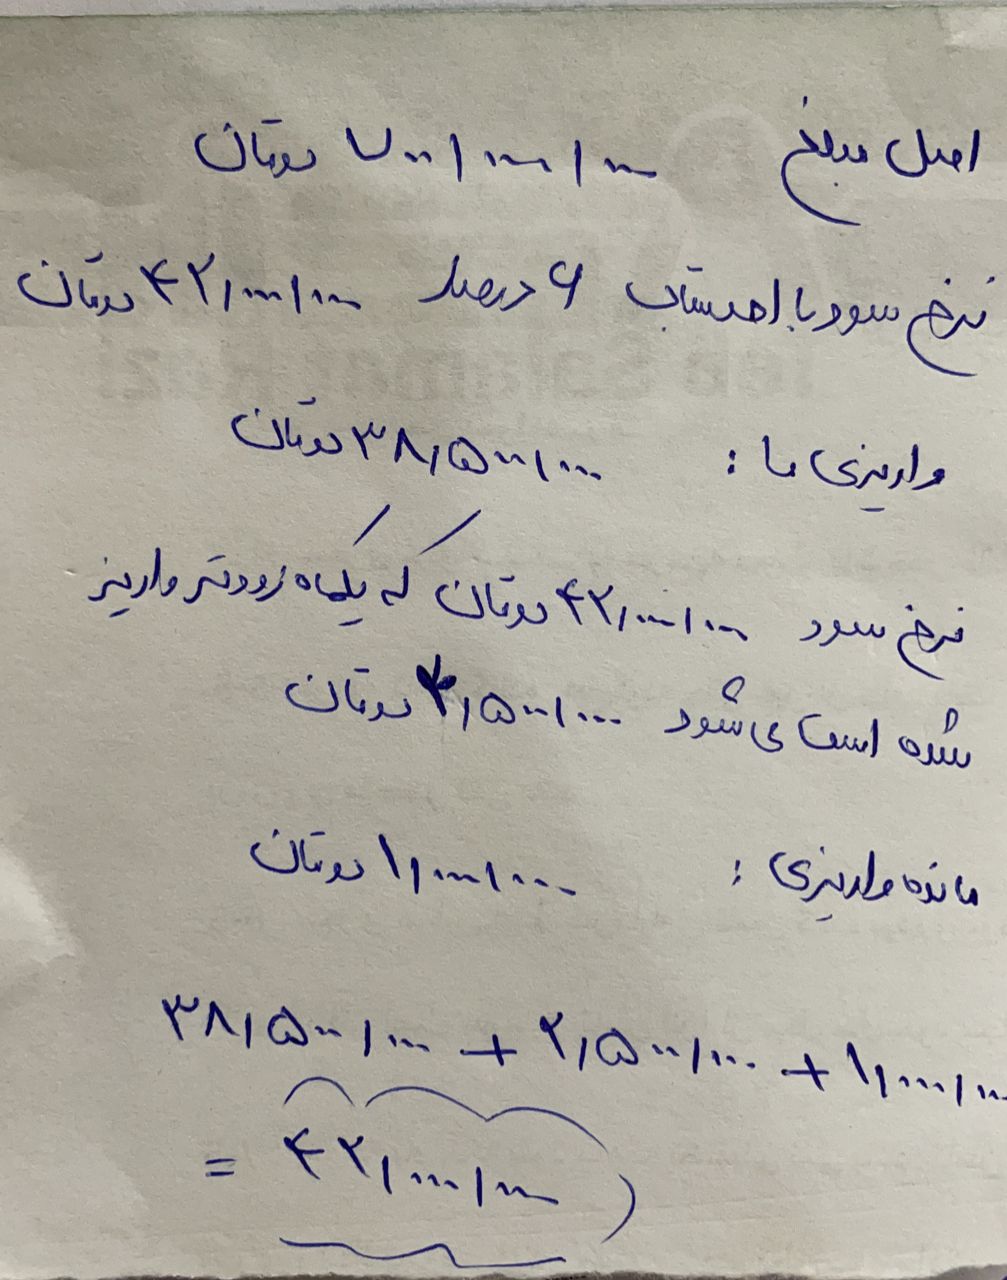 اصل مبلغ ۷۰۰/۰۰۰/۰۰۰ تومان
نرخ سود با احتساب ۶ درصد ۴۲/۰۰۰/۰۰۰ تومان
واریزی ما : ۳۸/۵۰۰/۰۰۰ تومان
نرخ سود ۴۲/۰۰۰/۰۰۰ تومان که یکماه زودتر واریز
شده است می شود ۲/۵۰۰/۰۰۰ تومان
مانده واریزی : ۱/۰۰۰/۰۰۰ تومان
۳۸/۵۰۰/۰۰۰ + ۲/۵۰۰/۰۰۰ + ۱/۰۰۰/۰۰۰
= ۴۲/۰۰۰/۰۰۰